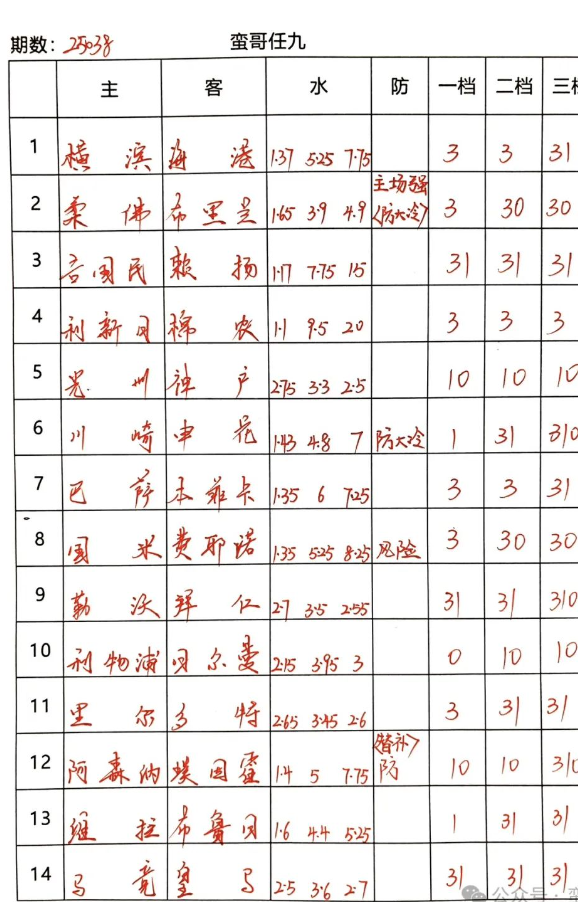 期数: 25038 蛮哥任九
主 客 水 防 一档 二档 三档
1 横滨 海港 1.37 5.25 7.75 3 3 31
主场强
2 柔佛 布里兰 1.65 3.9 4.9 <防大冷> 3 30 30
3 吉国民 赖扬 1.17 7.75 15 31 31 31
4 利新月 棉农 1.1 9.5 20 3 3 3
5 光州 神户 2.75 3.3 2.5 10 10 10
6 川崎 申花 1.43 4.8 7 防大冷 1 31 310
7 巴萨 本菲卡 1.35 6 7.25 3 3 31
8 国米 费耶诺 1.35 5.25 8.25 风险 3 30 30
9 勒沃 拜仁 2.7 3.5 2.55 31 31 310
10 利物浦 贝尔曼 2.15 3.95 3 0 10 10
11 里尔 多特 2.65 3.45 2.6 3 31 31
<替补>
12 阿森纳 埃因霍 1.4 5 7.75 防 10 10 310
13 维拉 布鲁日 1.6 4.4 5.25 1 31 31
14 马竞 皇马 2.5 3.6 2.7 31 31 31
公众号·蛮